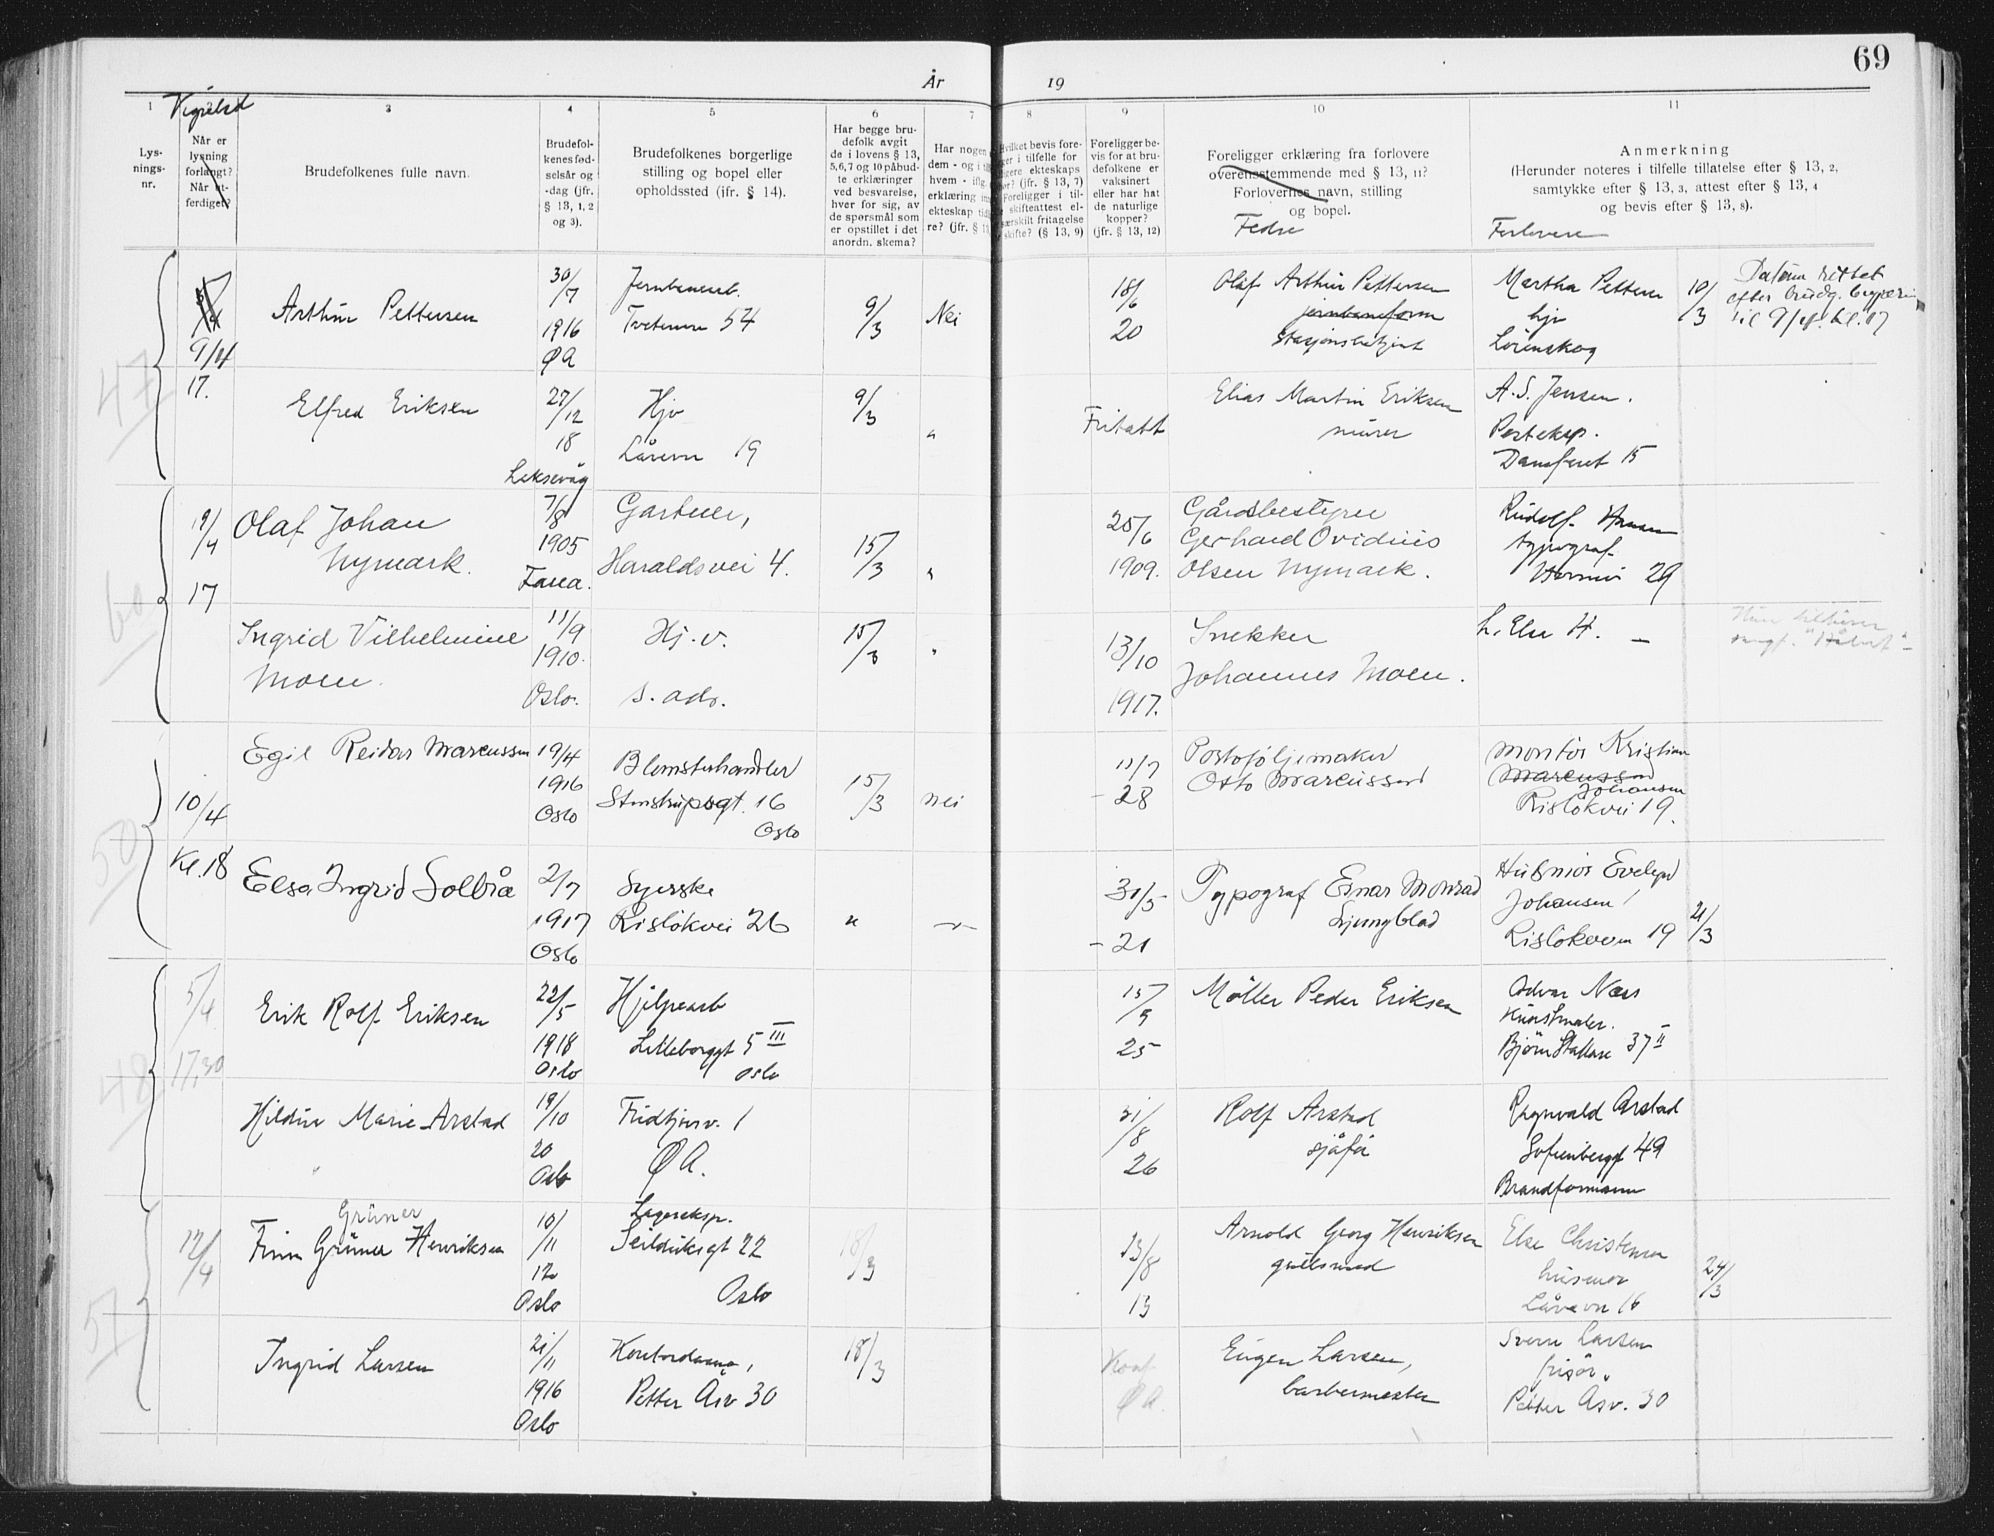 69
År 19
1 2 3 4 5 6 7 8 9 10 11
Vigselsd
Lys-
nings-
nr.
Når er
lysning
forlangt?
Når ut-
ferdiget?
Brudefolkenes fulle navn.
Brudefol-
kenes fød-
selsår og
-dag (jfr.
§ 13, 1, 2
og 3).
Brudefolkenes borgerlige
stilling og bopel eller
opholdssted (jfr. § 14).
Har begge bru-
defolk avgit
de i lovens § 13,
5, 6, 7 og 10 påbud-
te erklæringer
ved besvarelse,
hver for sig, av
de spørsmål som
er opstillet i det
anordn. skema?
Har nogen
dem - og i
hvem - iflg.
erklæring
ekteskap
re? (jfr. §
bevis fore-
i tilfelle for
ekteskaps
? (jfr. § 13, 7)
Foreligger i til-
skifteattest el-
særskilt fritagelse
skifte? (§ 13, 9)
Foreligger be-
vis for at bru-
defolkene er
vaksinert
eller har hat
de naturlige
kopper?
(jfr. § 13, 12)
Foreligger erklæring fra forlovere
overensstemmende med § 13, 11?
Forlovernes navn, stilling
og bopel.
Fedre
Anmerkning
(Herunder noteres i tilfelle tillatelse efter § 13, 2,
samtykke efter § 13, 3, attest efter § 13, 4
og bevis efter § 13, 8).
Forlovere
47
9/4
17.
Arthur Pettersen
30/7
1916
ØA
Tvetenvn 54
9/3
Nei
18/6
20
Olaf Arthur Pettersen
jernbaneform
stasjonsbetjent
Martha Pettersen
hjv
Lörenskog
10/3
Datoen rettet
efter brudg. begjæring
til 9/4. kl. 17
Elfred Eriksen
27/12
18
Leksevåg
Hjv
Låvevn 19
9/3
"
Fritatt
Elias Martin Eriksen
murer
A. S. Jensen.
Posteksp.
15
60
19/4
17
Olaf Johan
Nymark.
7/8
1905
Gartner,
Haraldsvei 4.
15/3
"
25/6
1909.
Gårdsbestyrer
Gerhard Ovidius
Olsen Nymark.
Rudolf
typograf
29
Ingrid Vilhelmine
Moen.
11/9
1910.
Oslo.
Hj. v.
s. ads.
15/3
"
13/10
1917.
Snekker
Johannes Moen.
h. Else H. —
50
10/4
Kl. 18
Egil Reidar Marcussen
19/4
1916
Oslo
Blomsterhandler
Stenstrupsgt. 16
Oslo
15/3
nei
11/7
- 28
Portföljemaker
Otto Marcussen
Montör Kristian
Marcussen
Johansen
Rislökvei 19.
Elsa Ingrid Solbrå
2/7
1917
Oslo
Syerske
Rislökvei 26
"
—"—
31/5
- 21
Typograf Einar Monrad
Ljungblad
Husmor Evelyn
Johansen
Rislökveien 19
21/3
48
5/4
17,30
Erik Rolf Eriksen
22/5
1918
Oslo
Hjelpearb
Lilleborggt 5 III
Oslo
15/9
25
Möller Peder Eriksen
Odvar Næss
Kunstmaler.
Björn Stallare 37 II
Hildur Marie Arstad
19/10
20
Oslo
Fridtjovsv. 1
ØA.
31/8
26
Rolf Arstad
sjåför
Ragnvald Arstad
Sofienberggt 49
Brandformann
57
12/4
Grüner
Finn Grüner Henriksen
10/11
12
Oslo
Lagereksp.
Seilduksgt 22
Oslo
18/3
13/8
13
Arnold Georg Henriksen
gullsmed
Else Christensen
husmor
Låvevn 16
24/3
Ingrid Larsen
21/11
1916
Oslo
Kontordame,
Petter Åsv 30
18/3
Konf
ØA.
Eugen Larsen,
barbermester
Sverre Larsen
frisör,
Petter Åsv. 30